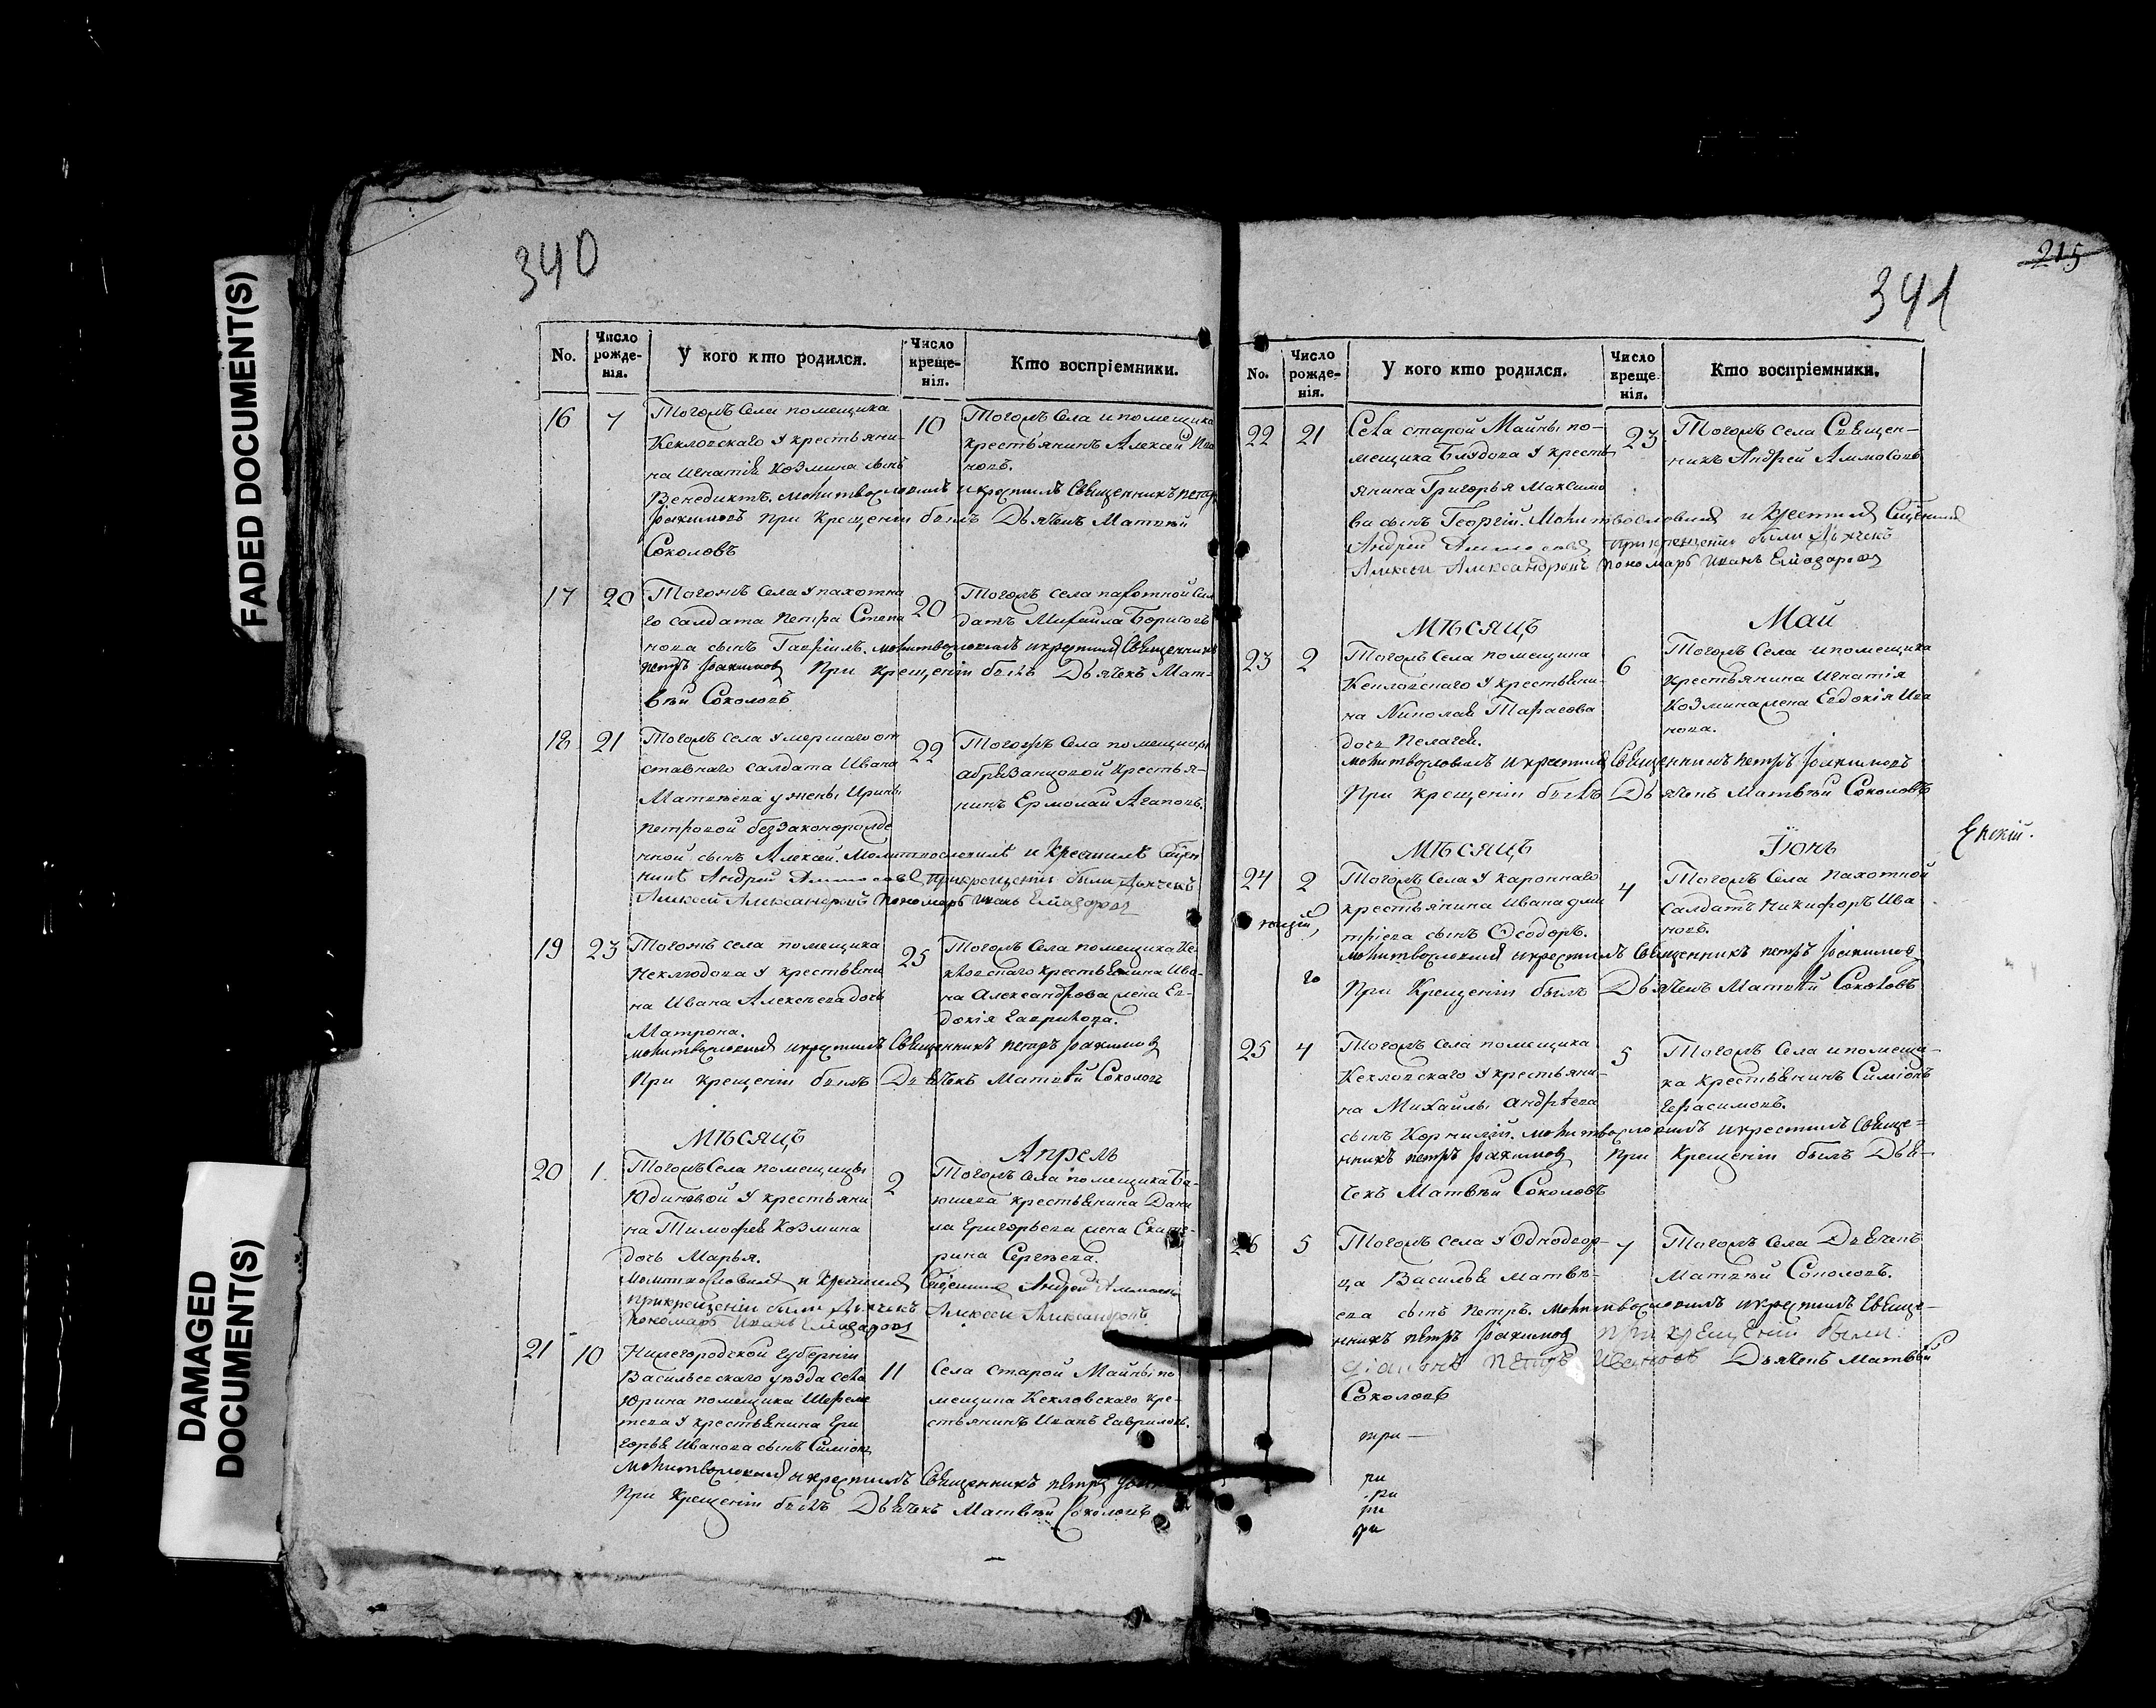 FADED DOCUMENT(S)
DAMAGED
DOCUMENT(S)
340
No.
Число
рожде-
нія.
У кого кто родился.
Число
креще-
нія.
Кто воспріемники.
16
7
Тогожъ Села помещика
Кекловскаго у крестьяни-
на Игнатія Козмина сынъ
Венедиктъ. молитвословилъ и крестилъ Священникъ петръ
Іоакимовъ При Крещеніи былъ Дьячекъ Матвѣй
Соколовъ
10
Тогожъ Села и помещика
крестьянинъ Алексей Ива
новъ.
17
20
Тогожъ Села у пахотна
го салдата Петра Степа
нова сынъ Гавріилъ. молитвословилъ и крестилъ Священникъ
петръ Іоакимовъ При Крещеніи былъ Дьячекъ Мат-
вѣй Соколовъ
20
Тогожъ села пахотной сал
датъ Михайла Борисовъ
18
21
Тогожъ села умершаго от
ставнаго салдата Ивана
Матвѣева у жены Ирины
петровой беззаконорожде
нной сынъ Алексей. Молитвословилъ и Крестилъ Сщен
никъ Андрей Аммосовъ При крещеніи были Дьячекъ
Алексей Александровъ Пономарь Иванъ
22
Тогожъ Села помещицы
крестья-
нинъ Ермолай Агаповъ.
19
23
Тогожъ села помещика
Неклюдова у крестьяни
на Ивана Алексѣева дочь
Матрона.
молитвословилъ и крестилъ Священникъ петръ Іоакимовъ
При крещеніи былъ Дьячекъ Матвѣй Соколовъ
25
Тогожъ Села помещика Ке
кловскаго крестьянина Ива-
на Александрова жена Ев-
докія Гаврилова.
Мѣсяцъ
Апрель
20
1.
Тогожъ Села помещицы
Юдиновой у крестьяни
на Тимофея Козмина
дочь Марья.
Молитвословилъ и Крестилъ Сщенникъ Андрей Аммосовъ
при крещеніи были Дьячекъ Алексей Александровъ
Пономарь Иванъ
2
Тогожъ Села помещика Ба-
юшева крестьянина Дани
ла Григорьева жена Екате-
рина Сергѣева.
21
10
Нижегородской губерніи
Васильевскаго уѣзда села
Юрина помещика Шереме
тева у крестьянина Гри
горья Иванова сынъ Симіонъ
молитвословилъ и крестилъ Священникъ петръ
При Крещеніи былъ Дьячекъ Матвѣй Соколовъ
11
Села старой Майны по
мещика Кекловскаго кре-
стьянинъ Иванъ Гавриловъ.
215
341
No.
Число
рожде-
нія.
У кого кто родился.
Число
креще
нія.
Кто воспріемники.
22
21
Села старой Майны по-
мещика Блудова у кресть
янина Григорья Максимо
ва сынъ Георгій. Молитвословилъ и Крестилъ Сщенникъ
Андрей Аммосовъ При крещеніи были Дьячекъ
Алексей Александровъ Пономарь Иванъ
23
Тогожъ села Священ-
никъ Андрей Аммосовъ
Мѣсяцъ
Май
23
2
Тогожъ Села помещика
Кекловскаго у крестьяни-
на Николая Тарасова
дочь Пелагея.
молитвословилъ и крестилъ Священникъ петръ Іоакимовъ
При крещеніи былъ Дьячекъ Матвѣй Соколовъ
6
Тогожъ Села и помещика
Крестьянина Игнатія
Козмина жена Евдокія Ива
нова.
Мѣсяцъ
Іюнь
24
2
Тогожъ Села у
крестьянина Ивана дми
тріева сынъ Ѳеодоръ.
молитвословилъ и крестилъ Священникъ петръ Іоакимовъ
При Крещеніи былъ Дьячекъ Матвѣй Соколовъ
4
Тогожъ Села Пахотной
салдатъ Никифоръ Ива
новъ.
го
25
4
Тогожъ Села помещика
Кекловскаго у крестьяни-
на Михайлы андрѣева
сынъ Корнилій. молитвословилъ и крестилъ Священ-
никъ петръ Іоакимовъ При Крещеніи былъ Дья-
чекъ Матвѣй Соколовъ
5
Тогожъ Села и помещи-
ка крестьянинъ Симіонъ
Герасимовъ.
26
5
Тогожъ села у Однодвор-
ца Василья Матвѣ-
ева сынъ Петръ. молитвословилъ и крестилъ Священ-
никъ петръ Іоакимовъ При крещеніи были:
Діаконъ Петръ Ивановъ Дьячекъ Матвѣй
Соколовъ
7
Тогожъ Села Дьячекъ
Матвѣй Соколовъ.
при -
ри
ри
ри
ри